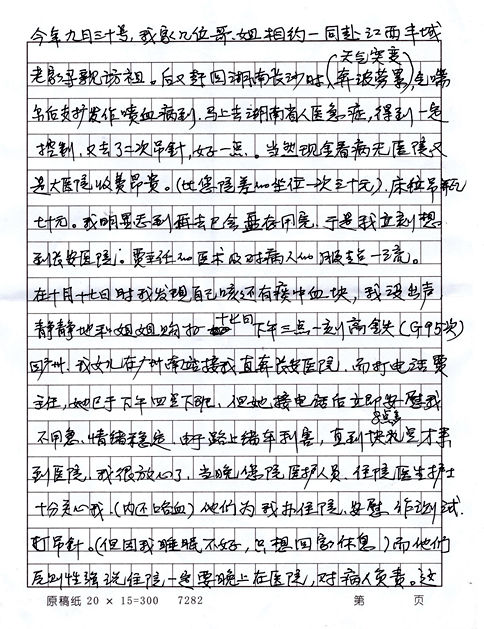 今年九月三十号,我家几位哥、姐相约一同赴江西丰城
老家寻亲访祖。后又赶回湖南长沙时(天气突变 奔波劳累),气喘
后支扩发作喷血病到,马上去湖南省人医急症,得到一定
控制,又去了二次吊针,好一点。当然现金看病无医院又
是大医院收费昂贵。(比您院差的坐位一次三十元),床位吊瓶
七十元。我明显感到 用完,于是我立刻想
到长安医院:贾主任的医术及对病人的服务一流。
在十月十七日时我发现自己咳还有痰中血块,我没出声
静静地和姐姐购好十七日下午三点一刻高铁(G95次)
回广州,我女儿在广州南站接我直奔长安医院,而打电话贾
主任,她已于下午四点下班,但她接电话后立即安慰我
不用急、情绪稳定,由于路上堵车利害,直到快九点多才来
到医院,我很放心了,当晚您院医护人员、住院医生护士
十分关心我,(内还咯血)他们为我办住院、安慰、作测试、
打吊针。(但因我睡眠不好,只想回家休息)而他们
原则性强说住院一定要晚上在医院,对病人负责。这
原稿纸 20 × 15=300 7282 第 页